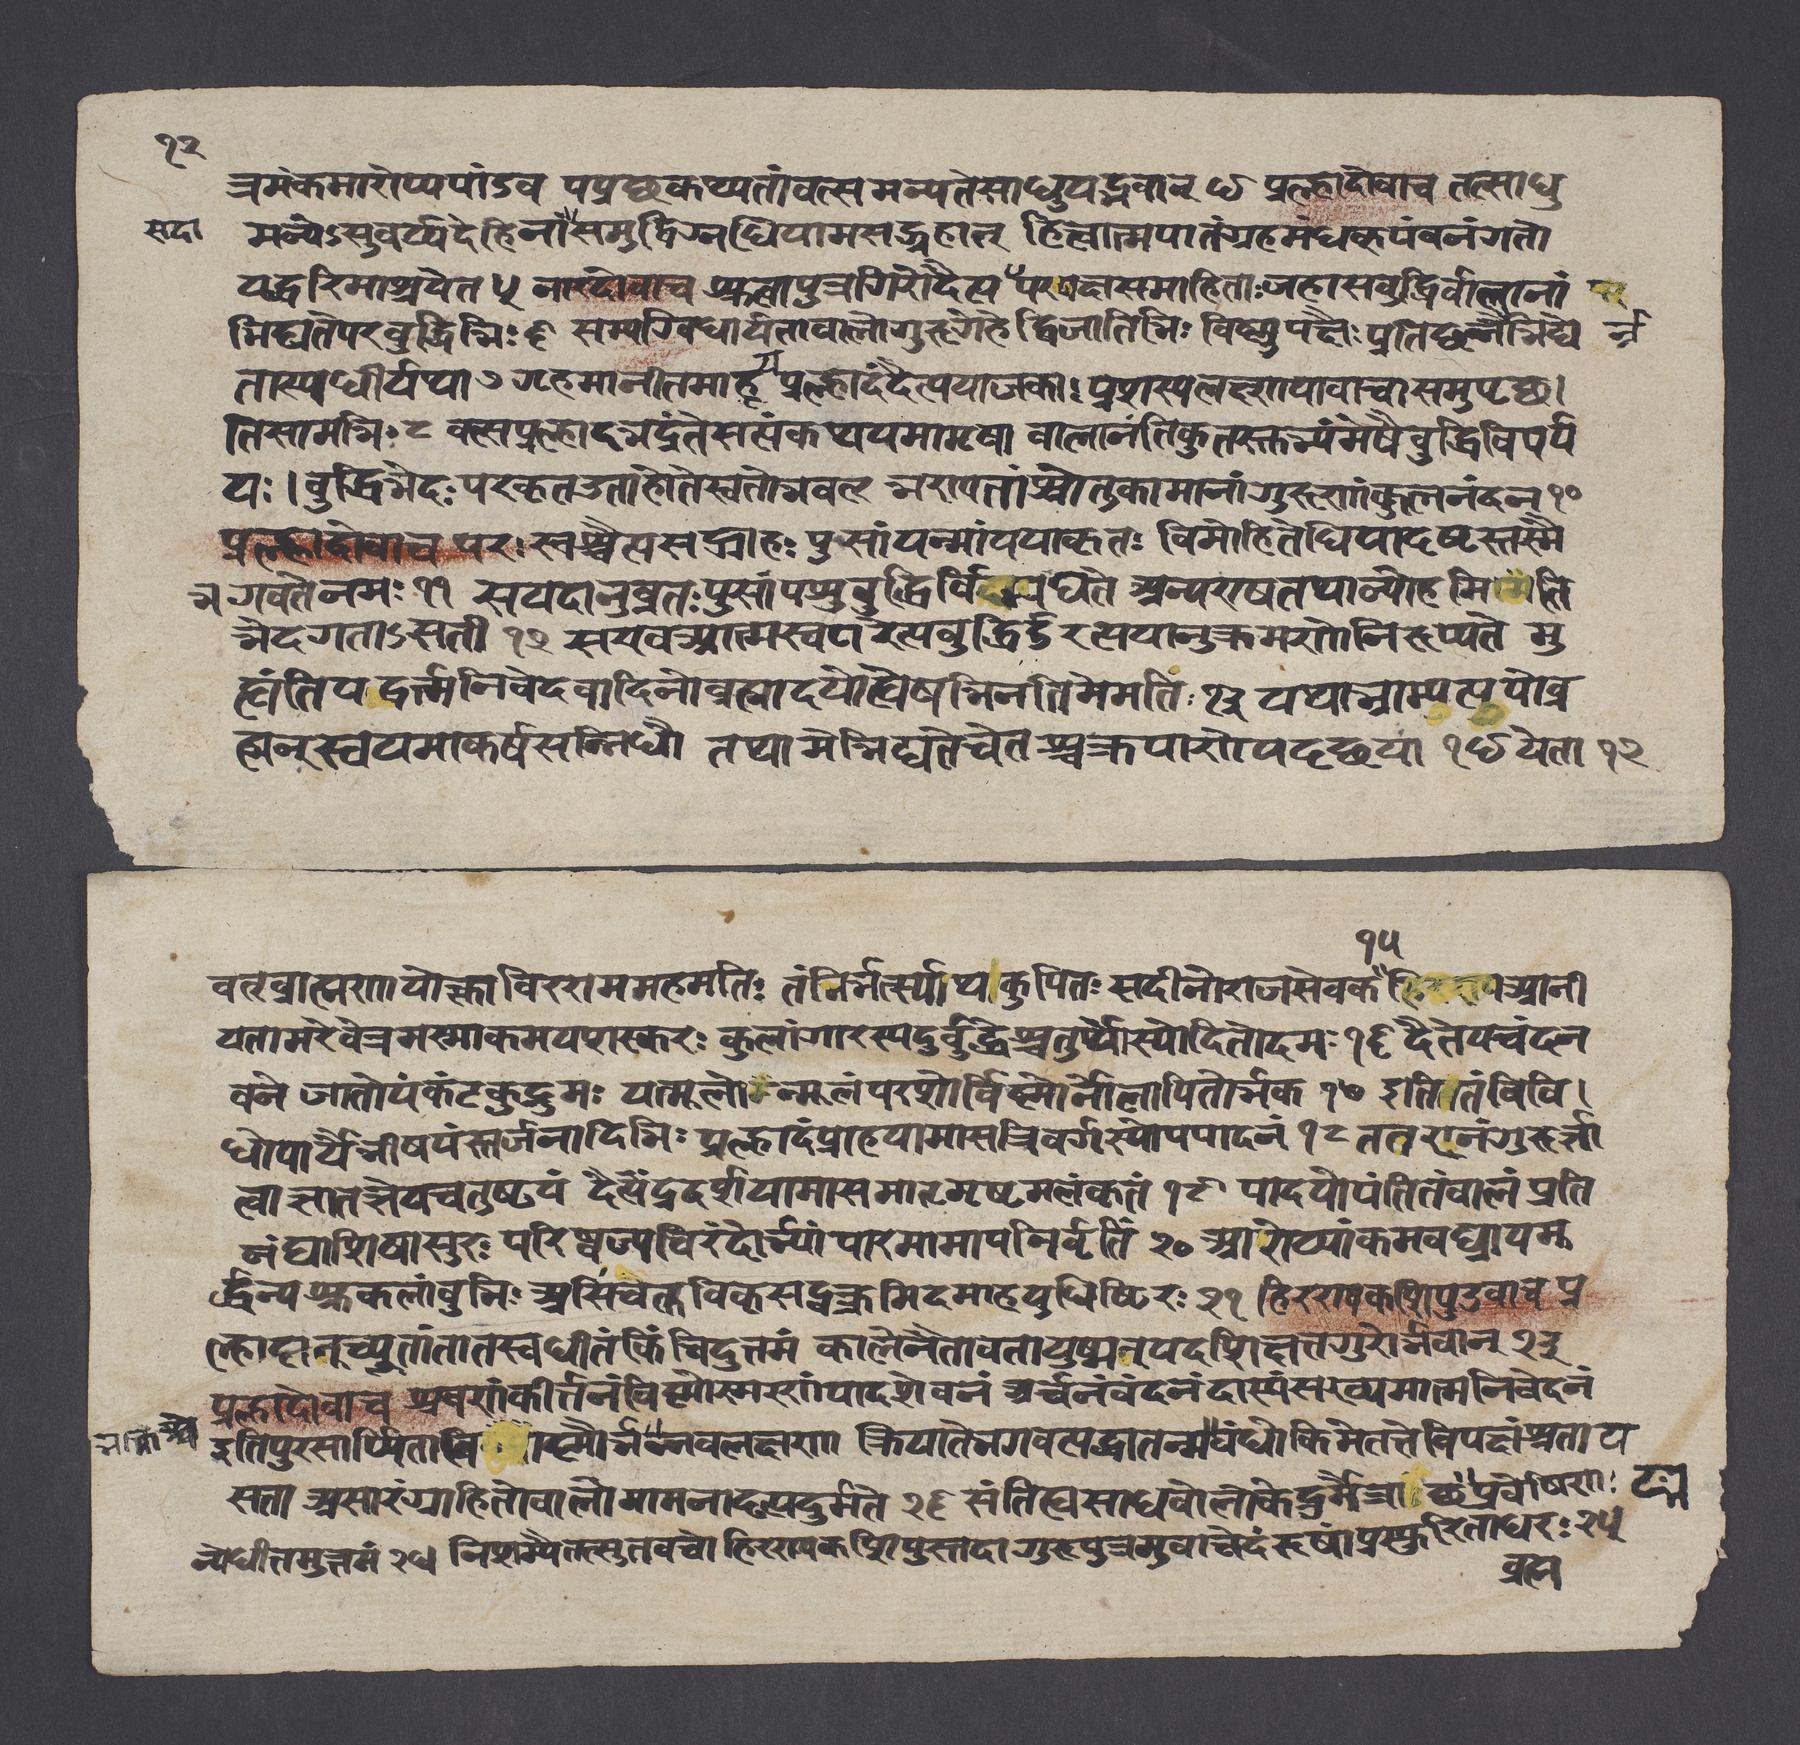 १२
त्रमंकमारोप्यपांडव पप्रछकथ्यतांवत्स मन्यतेसाधुयद्भवान् ४ प्रल्हादोवाच तत्साधु
सदा मन्येऽसुवर्य्यदेहिनां समुद्विग्नधियामसद्ग्रहात् हित्वात्मपातंग्रहमंधकूपंवनंगतो
यद्धरिमाश्रयेत ५ नारदोवाच श्रुत्वापुत्रगिरोदैत्य पर दासमाहिताः जहासवुद्धिर्वालानां
भिद्यतेपरवुद्धिभिः ६ सम्यग्विधार्यतावालोगुरूगेहेद्विजातिभिः विष्णुपक्षैः प्रतिछन्नैर्नभिद्ये
तास्यधीर्यथा ७ गृहमानीतमाहूय प्रल्हादंदैत्ययाजकाः प्रशस्यश्लक्ष्णयावाचा समुपृछ।
तिसामभिः ८ वत्सप्रल्हादभद्रंतेसत्यंकथ्ययमामृषा वालानंतिकुतस्तभ्यंमेषैवुद्धिविपर्य
यः। वुद्धिभेदः परकृतउताहोतेस्वतोभवत् भरायतांश्रोतुकामानां गुरूणांकुलनंदन १०
प्रल्हादोवाच परः स्वश्चैत्यसद्ग्राहः पुसांयन्मांययाकृतः विमोहितेधियादृष्टस्तस्मै
भगवतेनमः ११ सयदानुव्रतः पुसांपशुवुद्धिर्वि धते अन्यएषतथान्योहमि ति
भेदगताऽसती १२ सयवआत्मस्वपरेत्यवुद्धिर्डुरत्ययानुक्रमणोनिरूप्यते मु
ह्यंतियद्वर्त्मनिवेदवादिनोव्रह्मादयोह्येषभिनतिमेमतिं १३ यथाभ्राम्यत्ययोव्र
ह्मन् स्वयमाकर्षसन्निधौ तथामेभिद्यतेचेत श्चक्रपाणेयदृछया १४ येता १२
१५
वत्व्राह्मणायोक्त्वाविररामममहमतिः तंनिर्भत्स्यार्थकुपितः सदीनोराजसेवक आनी
यतामरेवेत्रमस्माकमयशस्करः कुलांगारस्यदुर्वुद्धेश्चतुर्थ्योस्योदितोदमः १६ दैतेयचंदन
वने जातोयंकंटकुद्रुमः यत्मूलोन्मूलंपरशोर्विष्णोर्नालापितोर्भक १७ इतितंविवि।
धोपायैर्भीषयंस्तर्जनादिभिः प्रल्हादंग्राहयामासत्रिवर्गस्योपपादनं १८ ततएनंगुरूर्ज्ञा
त्वाज्ञातज्ञेयचतुष्टयं दैत्येंद्रदर्शयामासमातृमृष्टमलंकृतं १९ पादयोपंतितंवालं प्रति
नंद्याशिषासुरः परिष्वज्यचिरंदोर्भ्यां पारमामापनिर्वृतिं २० आरोप्यांकमवघ्रायमू
र्द्धन्यश्रुकलांवुभिः असिंचत्क विकसद्वक्त्रमिदमाहयुधिष्टिरः २१ हिरण्यकशिपुउवाच प्र
ल्होदानूच्युतांतातस्वधीतंकिंचिदुत्तमं कालेनैतावतायुष्मन्यदशिक्षत्तगुरोर्भवान् २३
प्रल्हादोवाच श्रवणंकीर्त्तनंविष्णोस्मरणंपादशेवनं अर्चनंवंदनंदास्यंसख्यमात्मनिवेदनं
इतिपुरसार्प्यिता ष्णौर्भ न्नवलक्षणा क्रियातेभगवत्यद्धातन्म यंधोकिमेतत्तेविपक्षंश्रता य
सता असारंग्राहितोवालोमामनादृत्यदुर्मते २६ संतिह्यसाधवोलोकेदुर्मैत्रा छद्म प्रवेषिणः
न्येधीतमुत्तमं २४ निशम्यैतत्सुतवचो हिरण्यकशिपुस्तदा गुरूपुत्रमुवाचेदंरूषांप्रस्फुरिताधरः २५
व्रह्म